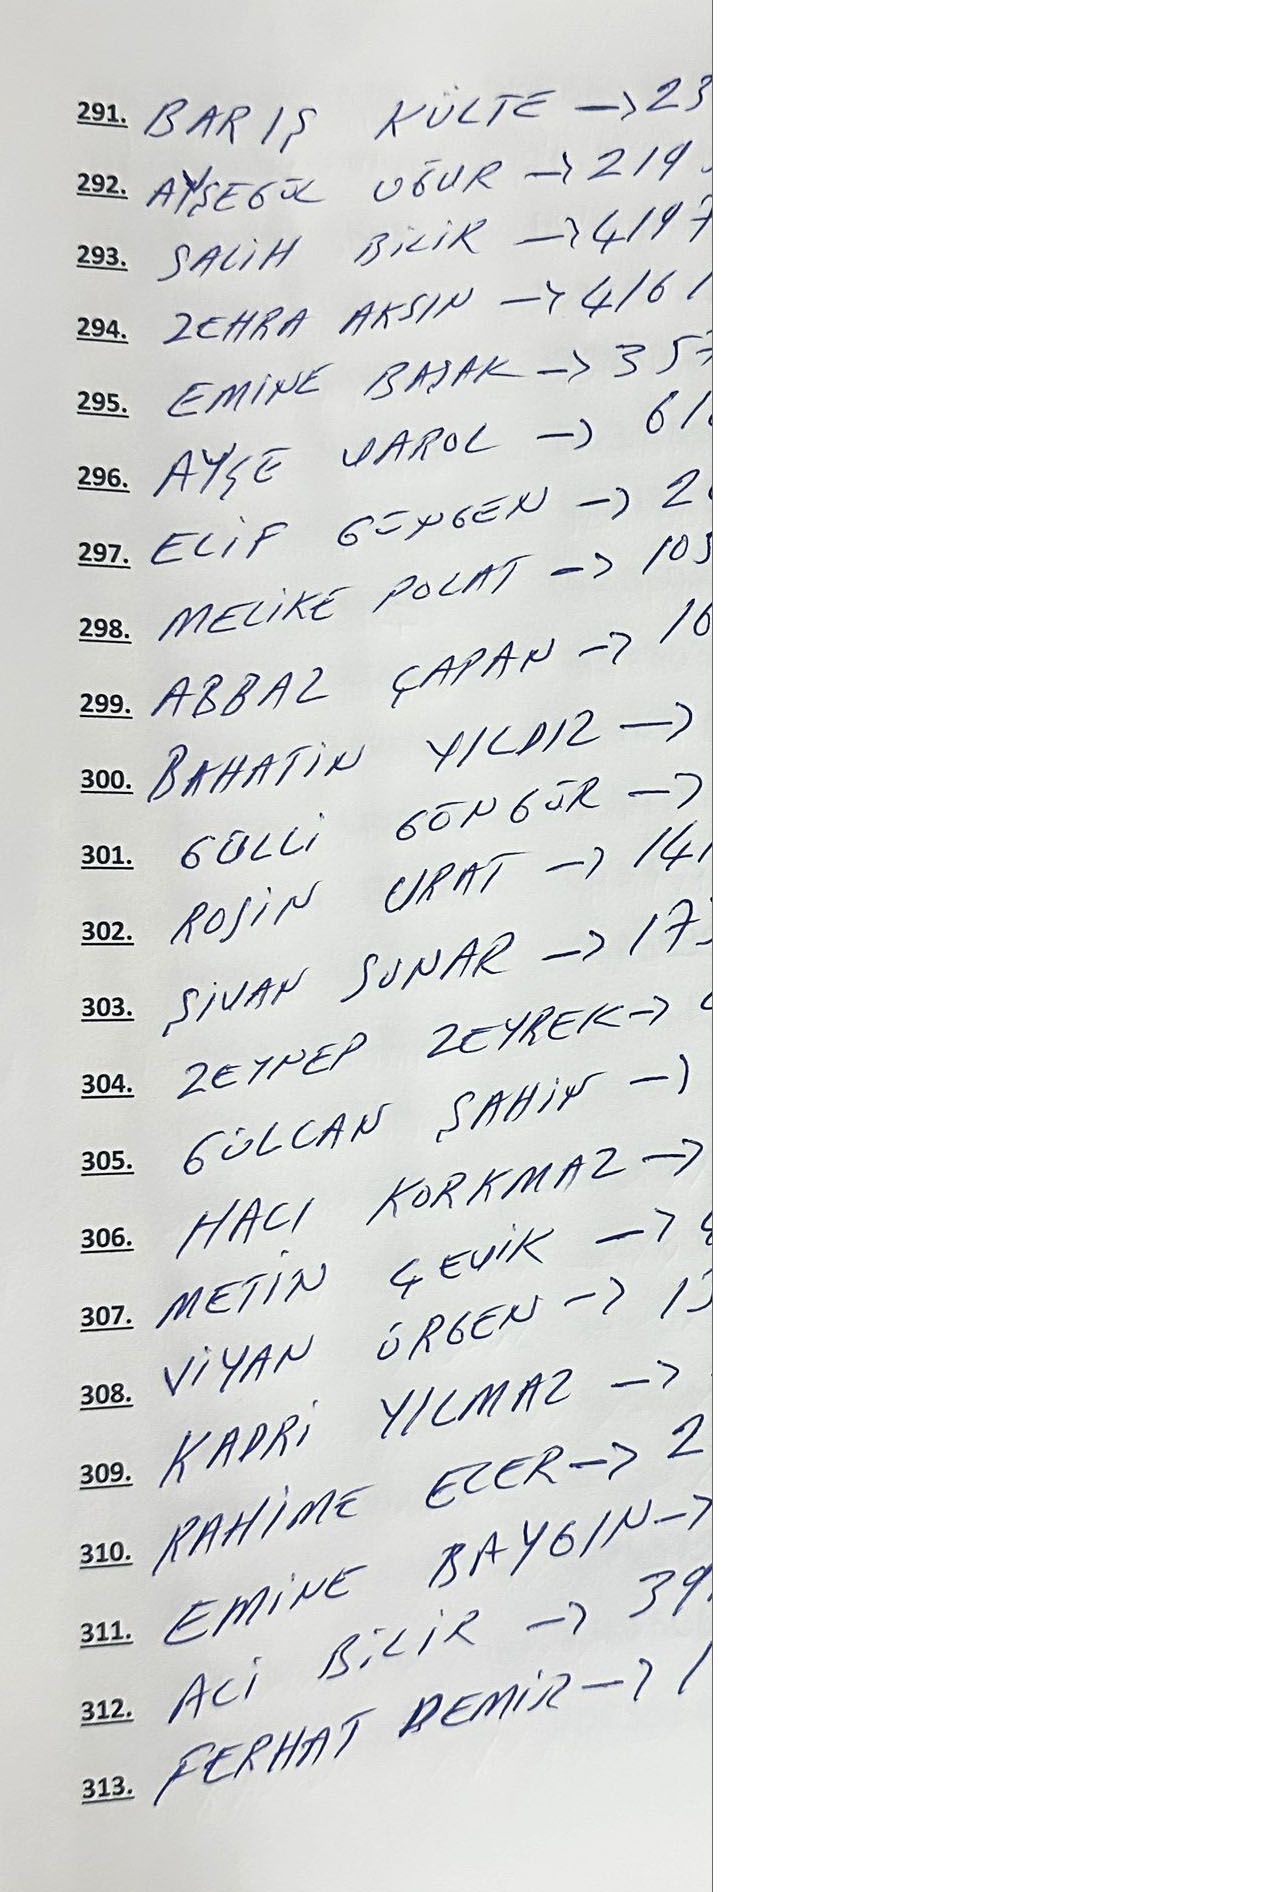 291. BARIŞ KÜLTE → 23
292. AYŞEGÜL UĞUR → 219
293. SALİH BİLİR → 4197
294. ZEHRA AKSIN → 4161
295. EMİNE BAŞAK → 357
296. AYŞE VAROL → 61
297. ELİF → 2
298. MELİKE POLAT → 105
299. ABBAZ ÇAPAN → 16
300. BAHATİN YILDIZ →
301. GÜLLİ GÜNGÜR →
302. ROJİN URAT → 141
303. ŞİVAN SUNAR → 173
304. ZEYNEP ZEYREK →
305. GÜLCAN ŞAHİN →
306. HACI KORKMAZ →
307. METİN ÇEVİK →
308. VİYAN ÜRGEN → 13
309. KADRİ YILMAZ →
310. RAHİME → 2
311. EMİNE BAYGIN →
312. ALİ BİLİR → 39
313. FERHAT DEMİR → 1